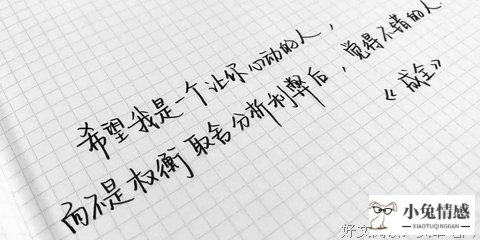 希望我是一个让你心动的人，
而不是权衡取舍分析利弊后，觉得不错的人.
《成全》
小兔情感
XIAOTUQINGGAN